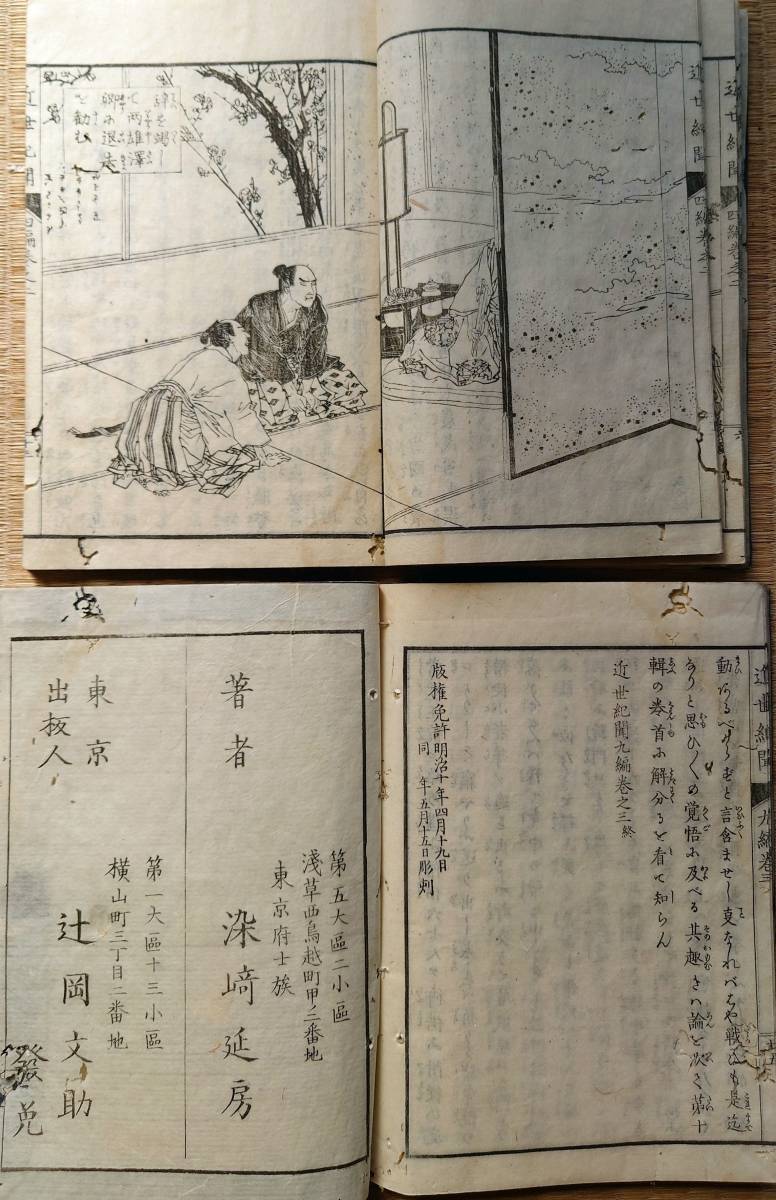 近世紀聞
四編巻之二
近世紀聞
四編巻之二
辞を竭し
て両雄澤
的小退去
を勧む
近世紀聞
近世紀聞
九編巻三
動あるべからずと言含ませし
戦ひも是迄
なりと思ひ
覚悟に及べる其趣きハ論を次ぎ第十
輯の巻首ふ解分るを看て知らん
近世紀聞九編巻之三終
版権免許明治十年四月十九日
同年五月十五日彫刻
著者
第五大區二小區
淺草西鳥越町甲ノ二番地
東京府士族
染﨑延房
東京
出板人
第一大區十三小區
横山町三丁目二番地
辻岡文助
發兌